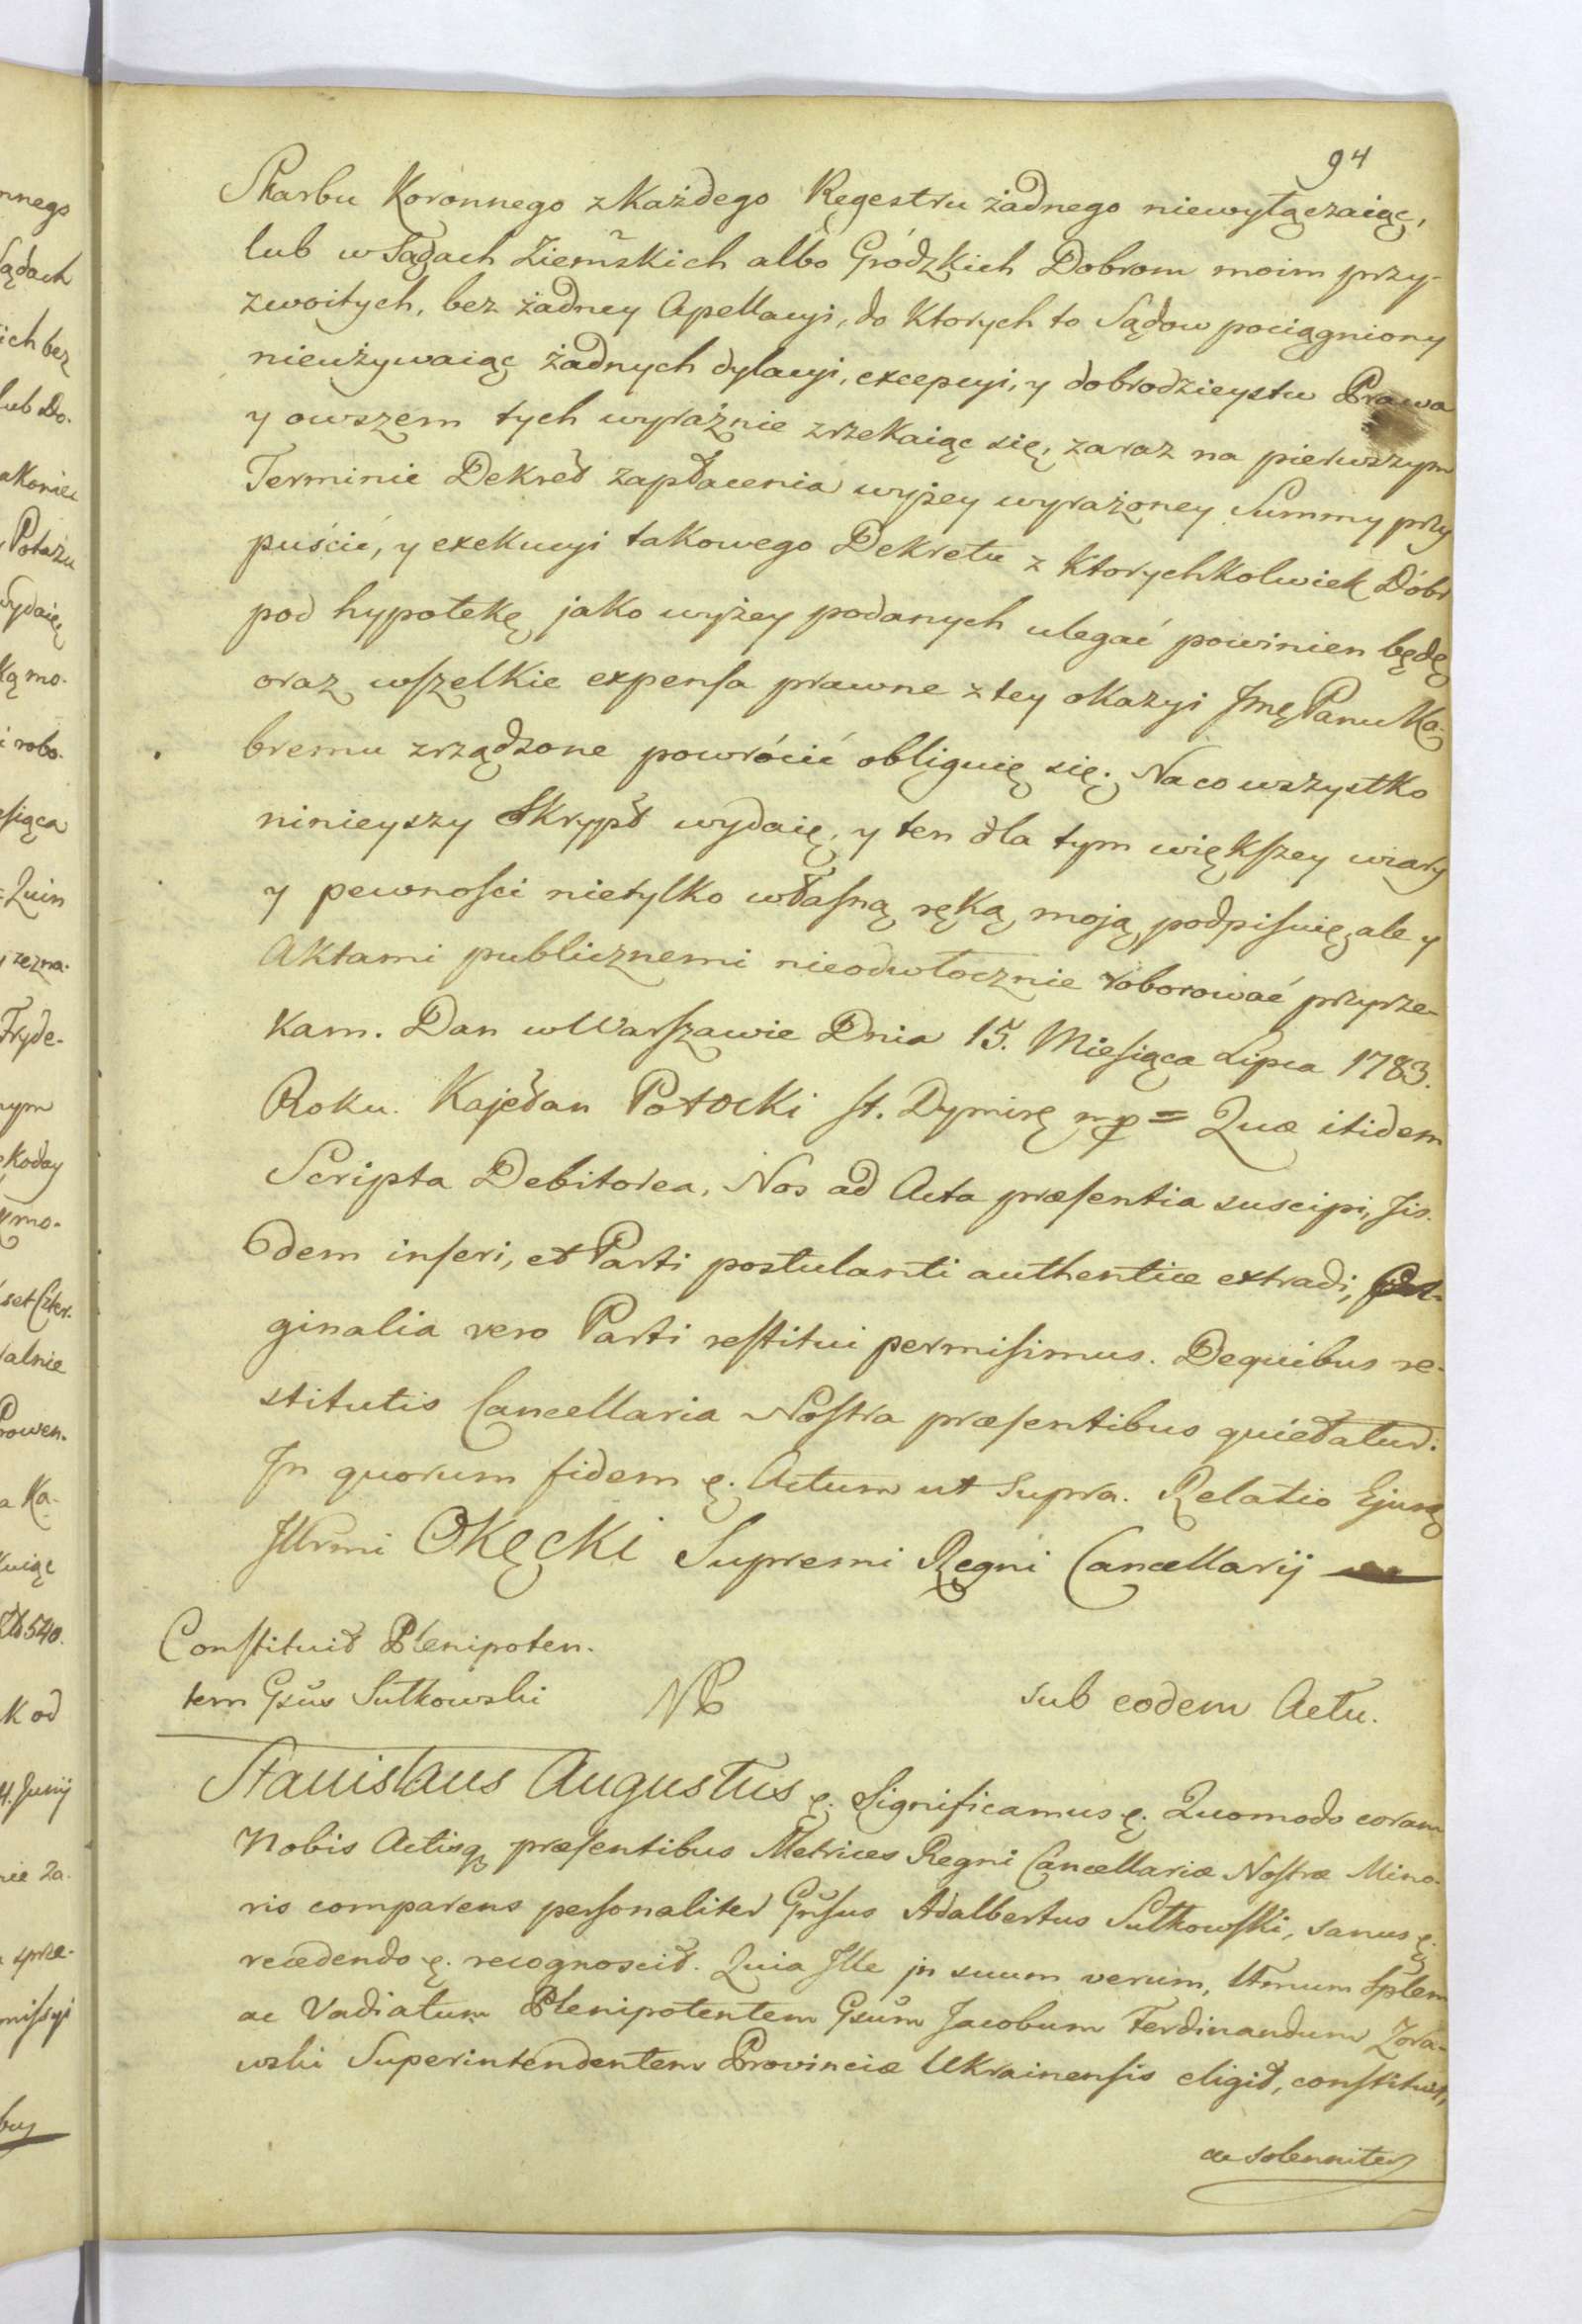 94
Skarbu Koronnego z Każdego Regestru żadnego niewyłączaiąc,
lub w Sądach Ziemskich albo Grodzkich Dobrom moim przy-
zwoitych, bez żadney Apellacyi, do Ktorych to Sądow pociągniony
nieużywaiąc żadnych dylacyi, excepcyi, y dobrodzieystw Prawa
y owszem tych wyraźnie zrzekaiąc się, zaraz na pierwszym
Terminie Dekret zapłacenia wyżey wyrażoney Summy przy
puścić, y exekucyi takowego Dekretu z Ktorychkolwiek Dóbr
pod hypotekę jako wyżey podanych ulegać powinien będę
oraz wszelkie expensa prawne z tey okazyi Jmę Panu Ka-
bremu zrządzone powrócić obliguię się. Na co wszystko
ninieyszy Skrypt wydaię, y ten dla tym większey wiary
y pewności nietylko własną ręką moją podpisuię, ale y
Aktami publicznemi nieodwłocznie roborować przyrze-
kam. Dan w Warszawie Dnia 15. Miesiąca Lipca 1783.
Roku. Kajetan Potocki St. Dymirę mp = Quæ itidem
Scripta Debitorea, Nos ad Acta præsentia suscipi, Jis-
dem inseri, et Parti postulanti authentice extradi,
ginalia vero Parti restitui permisimus. De quibus re-
stitutis Cancellaria Nostra præsentibus quietatur.
In quorum fidem ę. Actum ut Supra. Relatio Ejusdę
Jllrmi Okęcki Supremi Regni Cancellarij
Constituit Plenipoten-
tem Gsūs Sutkowski
sub eodem Actu.
Stanislaus Augustus ę. Significamus ę. Quomodo coram
Nobis Actisqę præsentibus Metrices Regni Cancellariæ Nostræ Mino-
ris comparens personaliter Gnsus Adalbertus Sutkowski, sanus ę.
recedendo ę. recognoscit. Quia Jlle jn suum verum, Ltmum Sptem
ac Vadiatum Plenipotentem Gsūm Jacobum Ferdinandum Zora-
wski Superintendentem Provinciæ Ukrainensis eligit, constituit,
ac solenniter